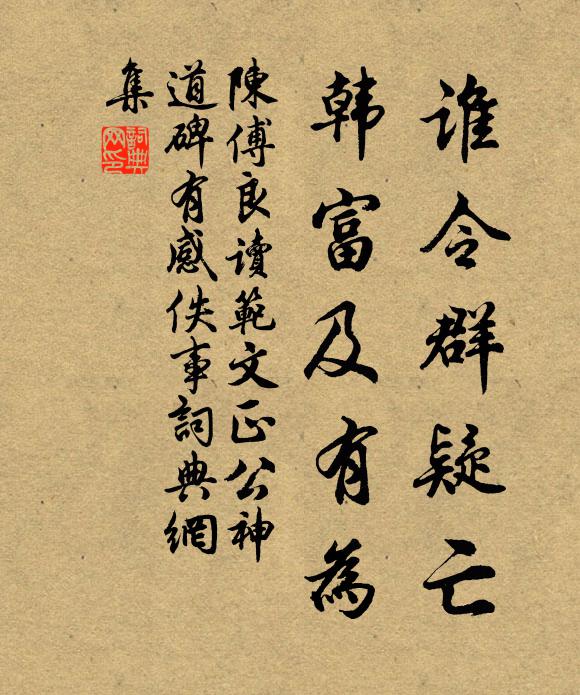 谁令群疑亡
韩富及有為
陳傅良讀範文正公神
道碑有感佚事詞典網
集
詞典網印